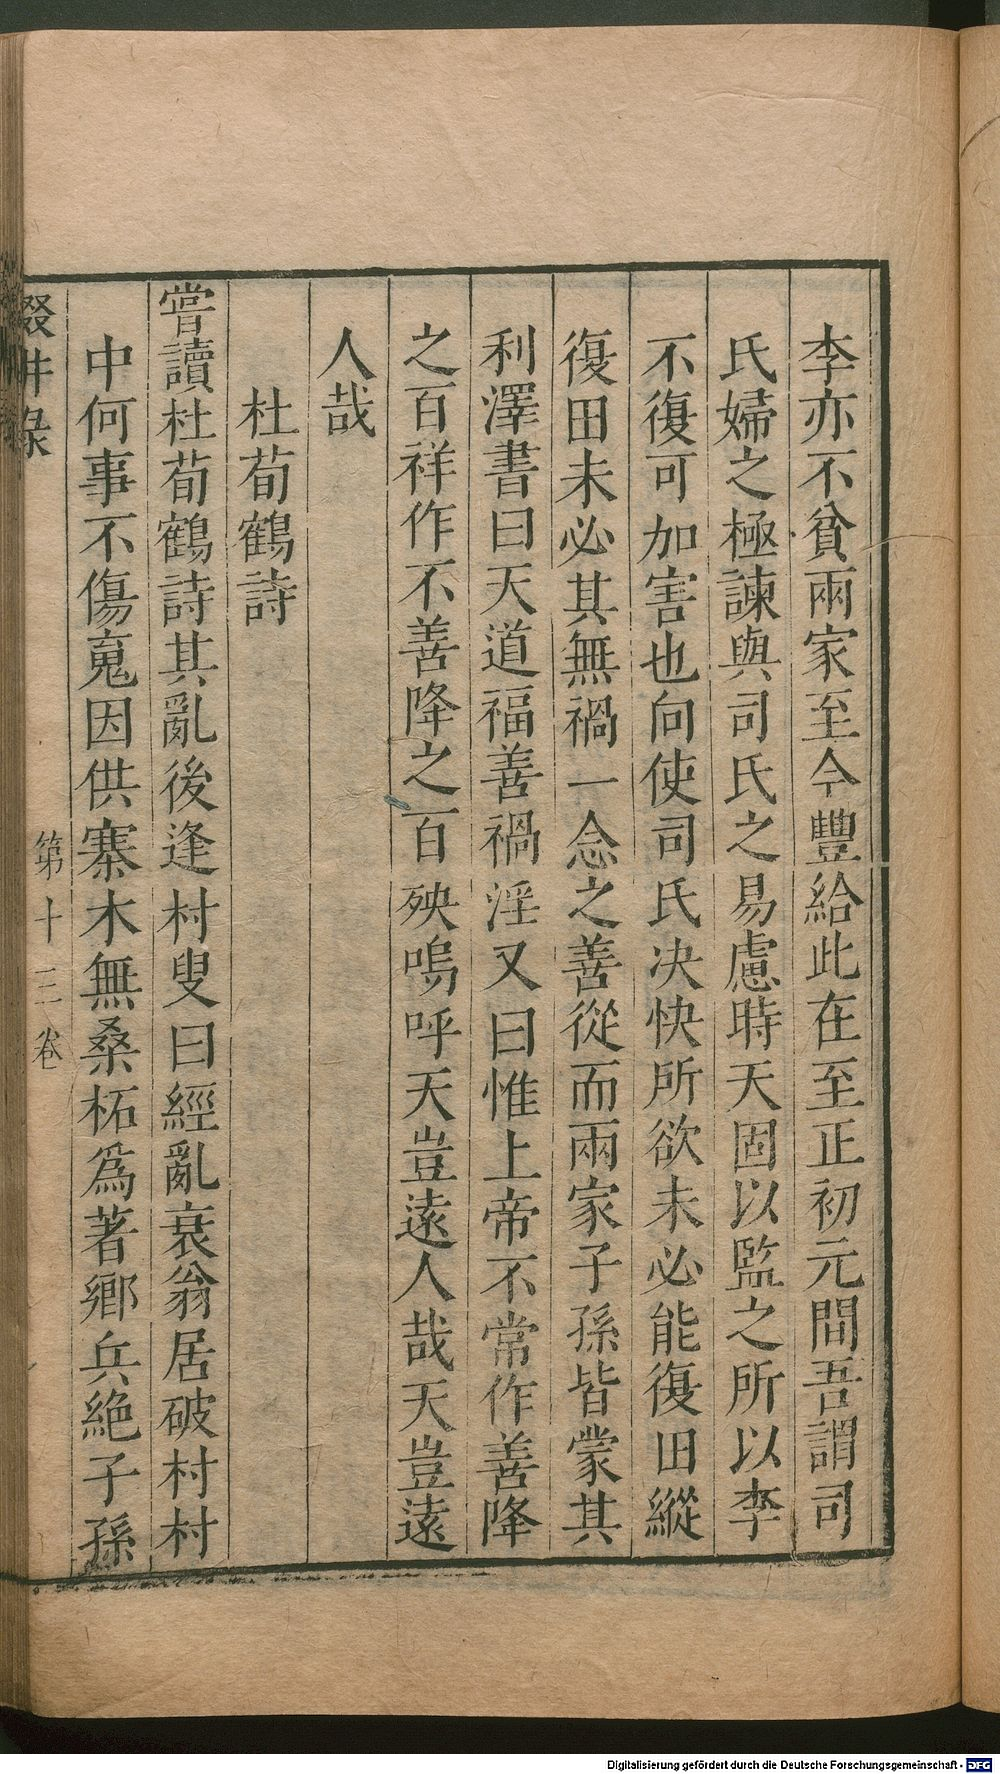 李亦不貧兩家至今豐給此在至正初元間吾謂司
氏婦之極諫與司氏之易慮時天固以監之所以李
不復可加害也向使司氏决快所欲未必能復旧縱
復田未必其無禍一念之善從而兩家子孫皆蒙其
利澤書曰天道福善禍淫又曰惟上帝不常作善降
之百祥作不善降之百殃嗚呼天豈遠人哉天豈遠
人哉
杜荀鶴詩
嘗讀杜荀鶴詩其亂後逢村叟曰經亂衰翁居破村村
中何事不傷䰟因供寨木無桑柘爲著鄉兵絶子孫
輟畊录
第十三卷
Digitalisierung gefördert durch die Deutsche Forschungsgemeinschaft - DFG